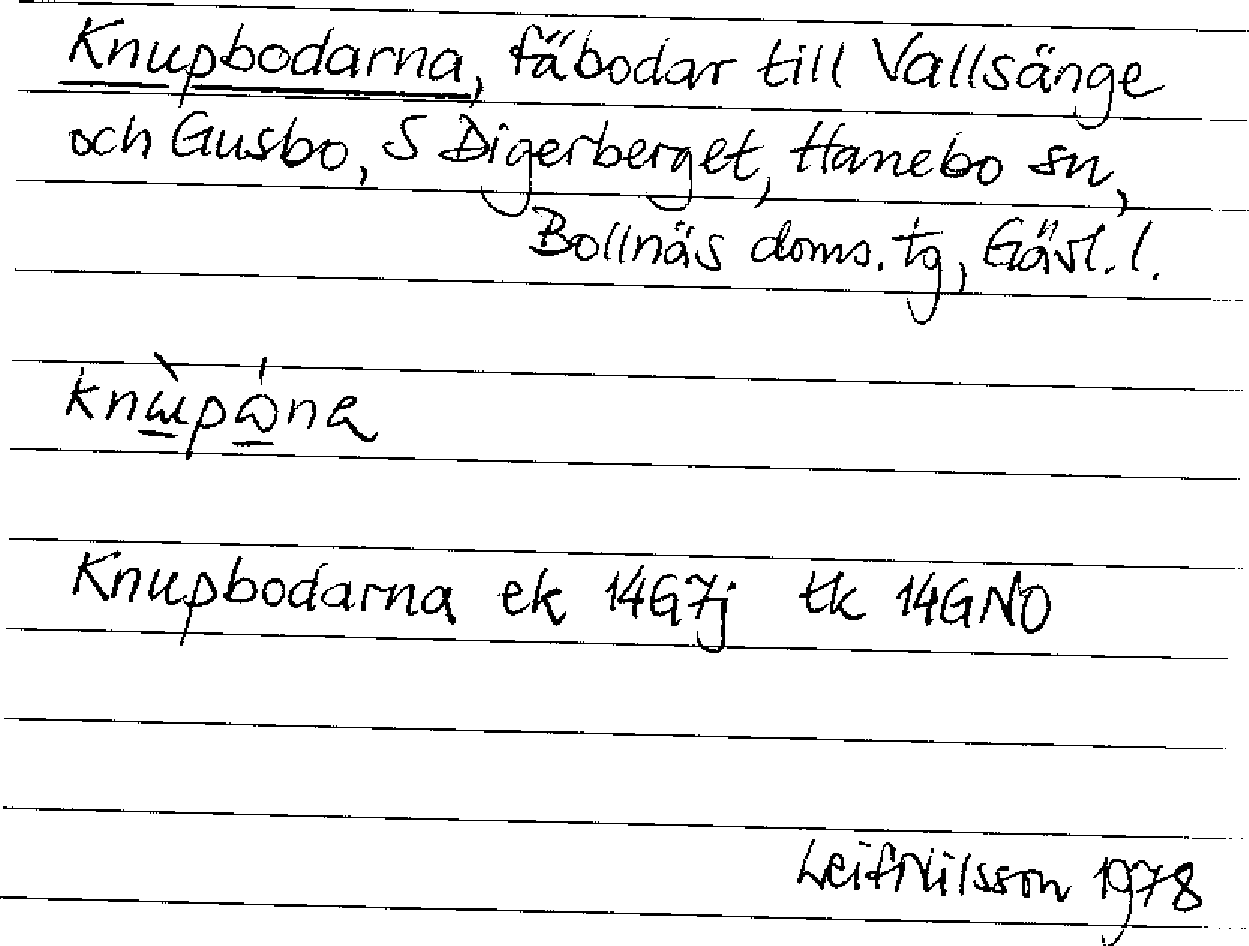 Knupbodarna, fäbodar till Vallsänge
och Gusbo, S Digerberget, Hanebo sn,
Bollnäs doms. tg, Gävl. l.
Knupbodarna ek 14G7j tk 14GNO
Leif Nilsson 1978